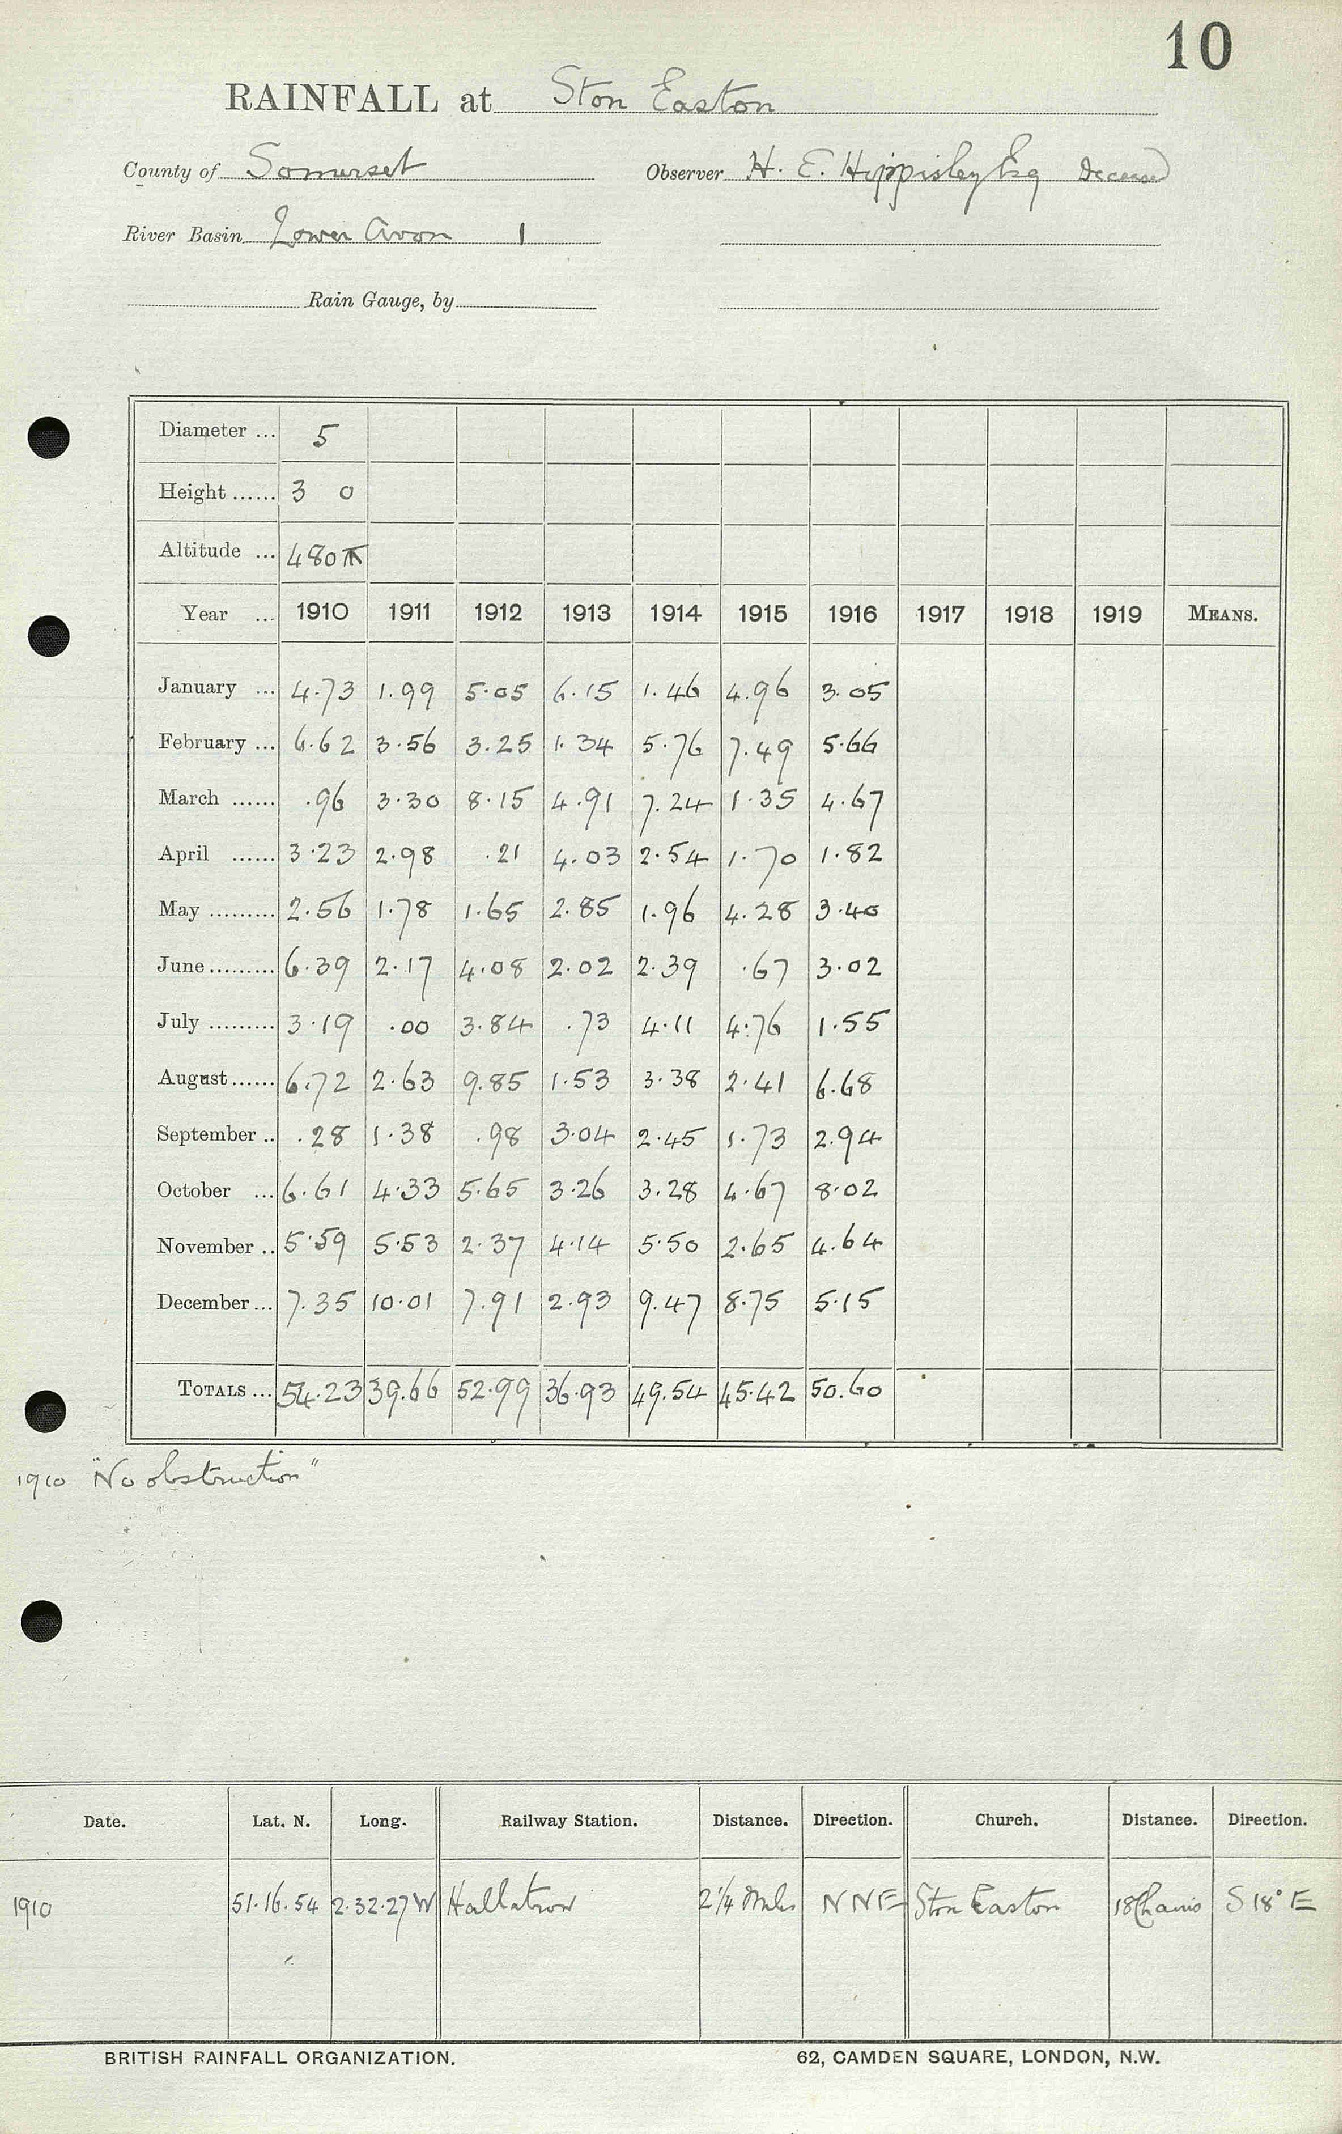 10
RAINFALL at Ston Easton
County of Somerset Observer H. E. Hippisley Esq Deceased
River Basin Lower Avon 1
Rain Gauge, by
Diameter ... 5
Height ...... 3 0
Altitude ... 480 ft
Year ... 1910 1911 1912 1913 1914 1915 1916 1917 1918 1919 MEANS.
January ... 4.73 1.99 5.05 6.15 1.46 4.96 3.05
February ... 6.62 3.56 3.25 1.34 5.76 7.49 5.66
March ...... .96 3.30 8.15 4.91 7.24 1.35 4.67
April ...... 3.23 2.98 .21 4.03 2.54 1.70 1.82
May ......... 2.56 1.78 1.65 2.85 1.96 4.28 3.40
June ......... 6.39 2.17 4.08 2.02 2.39 .67 3.02
July ......... 3.19 .00 3.84 .73 4.11 4.76 1.55
August ...... 6.72 2.63 9.85 1.53 3.38 2.41 6.68
September .. .28 1.38 .98 3.04 2.45 1.73 2.94
October ... 6.61 4.33 5.65 3.26 3.28 4.67 8.02
November .. 5.59 5.53 2.37 4.14 5.50 2.65 4.64
December ... 7.35 10.01 7.91 2.93 9.47 8.75 5.15
TOTALS ... 54.23 39.66 52.99 36.93 49.54 45.42 50.60
1910 "No obstruction"
Date. Lat. N. Long. Railway Station. Distance. Direction. Church. Distance. Direction.
1910 51.16.54 2.32.27 W Hallatrow 2 1/4 Miles NNE Ston Easton 18 Chains S 18° E
BRITISH RAINFALL ORGANIZATION. 62, CAMDEN SQUARE, LONDON, N.W.